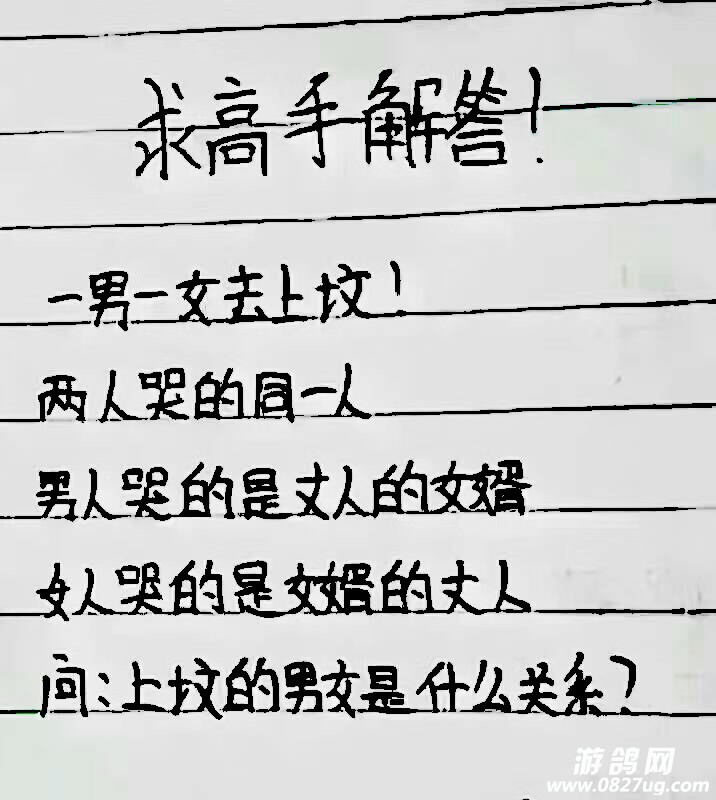 求高手解答!
一男一女去上坟!
两人哭的同一人
男人哭的是丈人的女婿
女人哭的是女婿的丈人
问:上坟的男女是什么关系?
游鸽网
www.0827ug.com